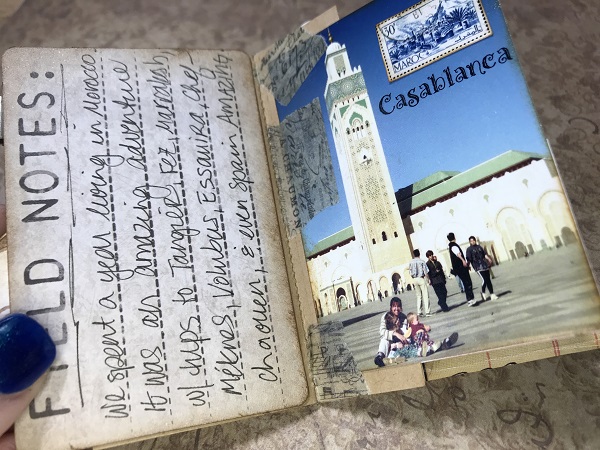 FIELD NOTES:
We spent a year living in Morocco
It was an amazing adventure
w/ trips to Tangier, Fez, Marrakesh,
Méknes, Volubus, Essauira, che-
chaouen, & even Spain. AMAZING,
90F
MAROC
المغرب
Casablanca